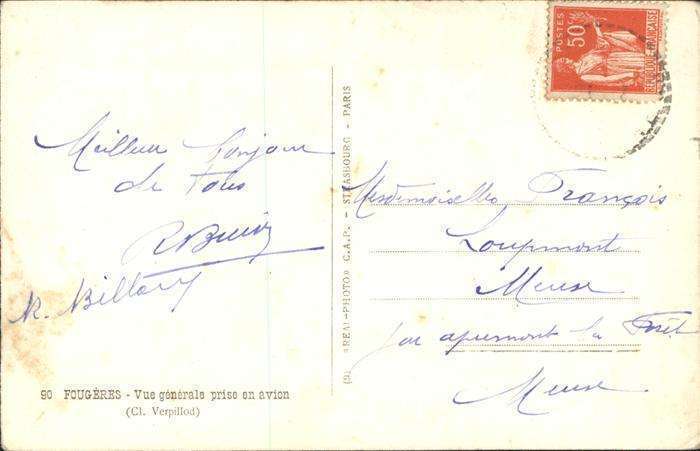 Meilleur Bonjour
de Tous
R. Billary
90 FOUGÈRES - Vue générale prise en avion
(Cl. Verpillod)
«REAL-PHOTO» C.A.P. - STRASBOURG - PARIS
POSTES
50c
RÉPUBLIQUE FRANÇAISE
Mesdemoiselles François
Loupmont
Meuse
par apremont la Forêt
Meuse